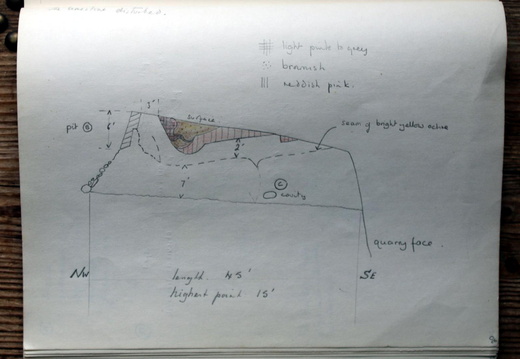 light pink to grey
brownish
reddish pink.
3'
surface
6'
pit B
seam of bright yellow ochre
2'
7'
C
cavity
quarry face.
NW
SE
length. 45'
highest point 15'